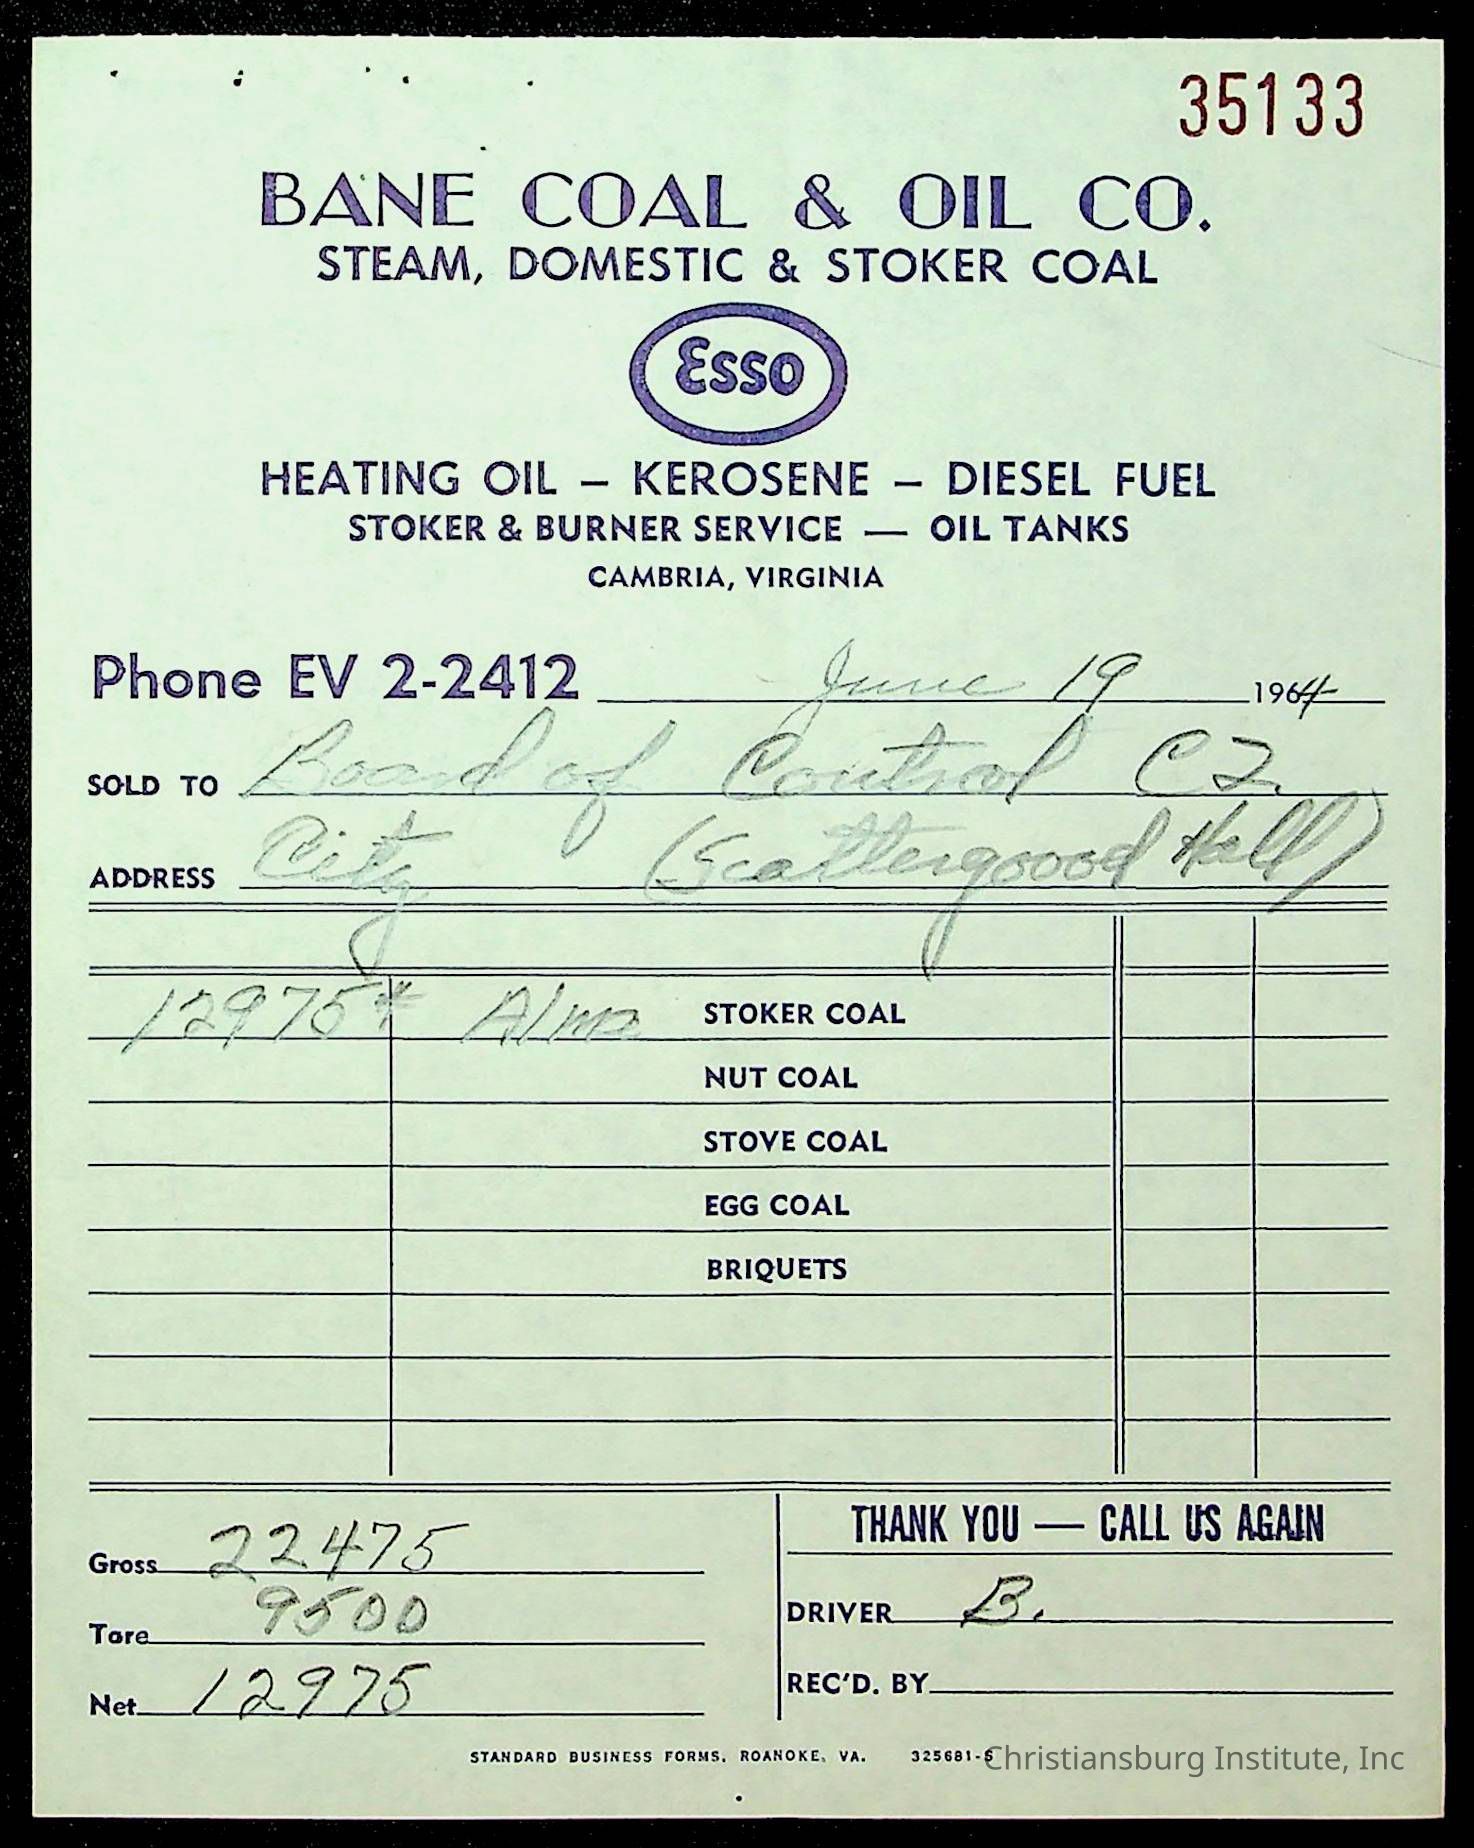 35133
BANE COAL & OIL CO.
STEAM, DOMESTIC & STOKER COAL
Esso
HEATING OIL – KEROSENE – DIESEL FUEL
STOKER & BURNER SERVICE — OIL TANKS
CAMBRIA, VIRGINIA
Phone EV 2-2412 June 19 1964
SOLD TO Board of Control C2.
ADDRESS City (Scattergood Hall)
12975# Alma STOKER COAL
NUT COAL
STOVE COAL
EGG COAL
BRIQUETS
Gross 22475
Tare 9500
Net 12975
THANK YOU — CALL US AGAIN
DRIVER B.
REC'D. BY
STANDARD BUSINESS FORMS, ROANOKE, VA. 325681-S
Christiansburg Institute, Inc